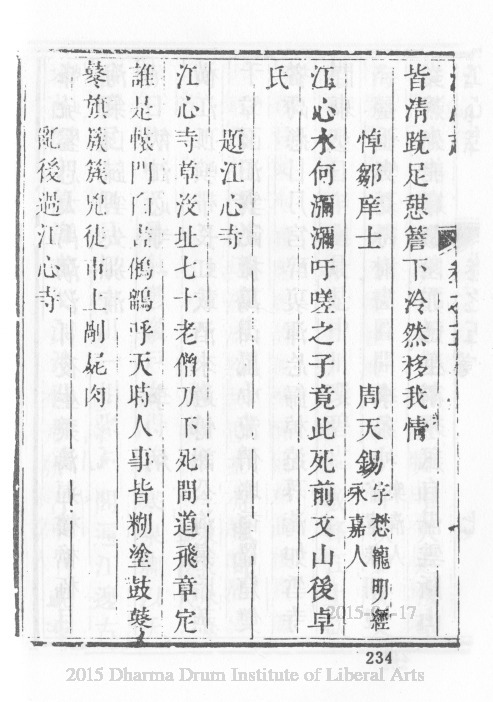 皆淸跣足憇簷下泠然移我情
悼鄒庠士 周天錫 字懋寵明經 永嘉人
江心水何瀰瀰吁嗟之子竟此死前文山後卓
氏
題江心寺
江心寺草沒址七十老僧刀下死間道飛章定
誰是帳門白 鵂鶹呼天時人事皆糊塗鼓
旗 篆兇徒市上剮屍肉
亂後過江心寺
234
2015-04-17
2015 Dharma Drum Institute of Liberal Arts